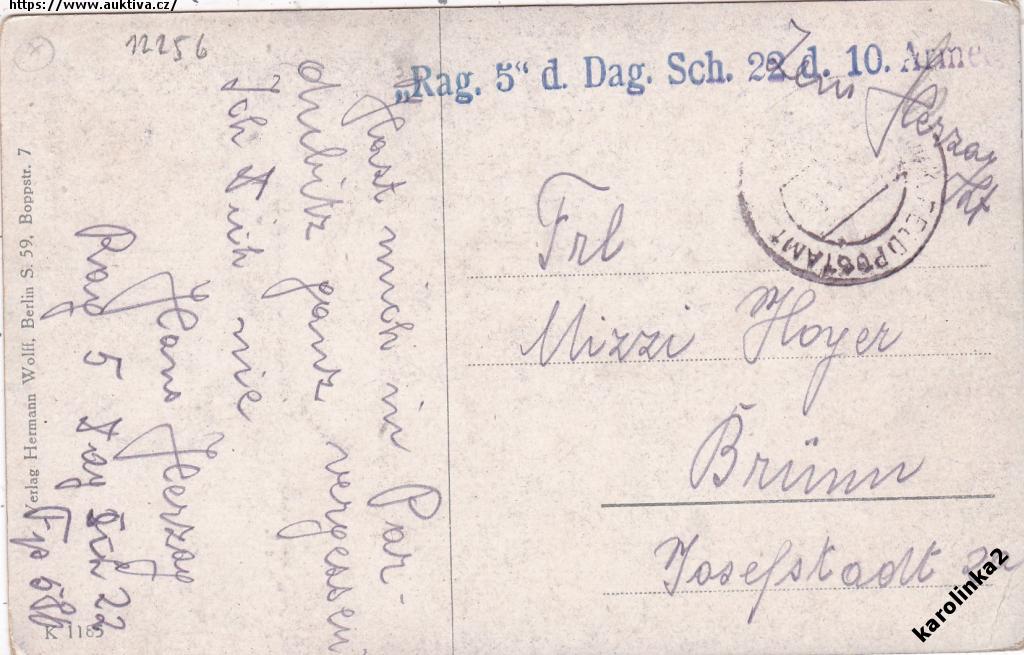 https://www.auktiva.cz/
12256
„Rag. 5“ d. Dag. Sch. 22 d. 10. Armee
Herzog
FELDPOSTAMT
Frl
Mizzi Hoyer
Brünn
Josefstadt
Hast mich in Par-
dubitz ganz vergessen
Ich Dich nie
Hans Herzog
Rag 5 Dag Sch 22
Fp
Verlag Hermann Wolff, Berlin S. 59, Boppstr. 7
K 1185
karolinka2